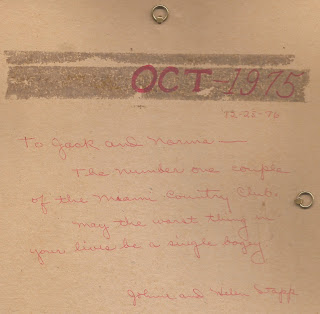 OCT-1975
12-25-70
To Jack and Norma —
The number one couple
of the Miami Country Club.
May the worst thing in
your lives be a single bogey
Johnie and Helen Stepp